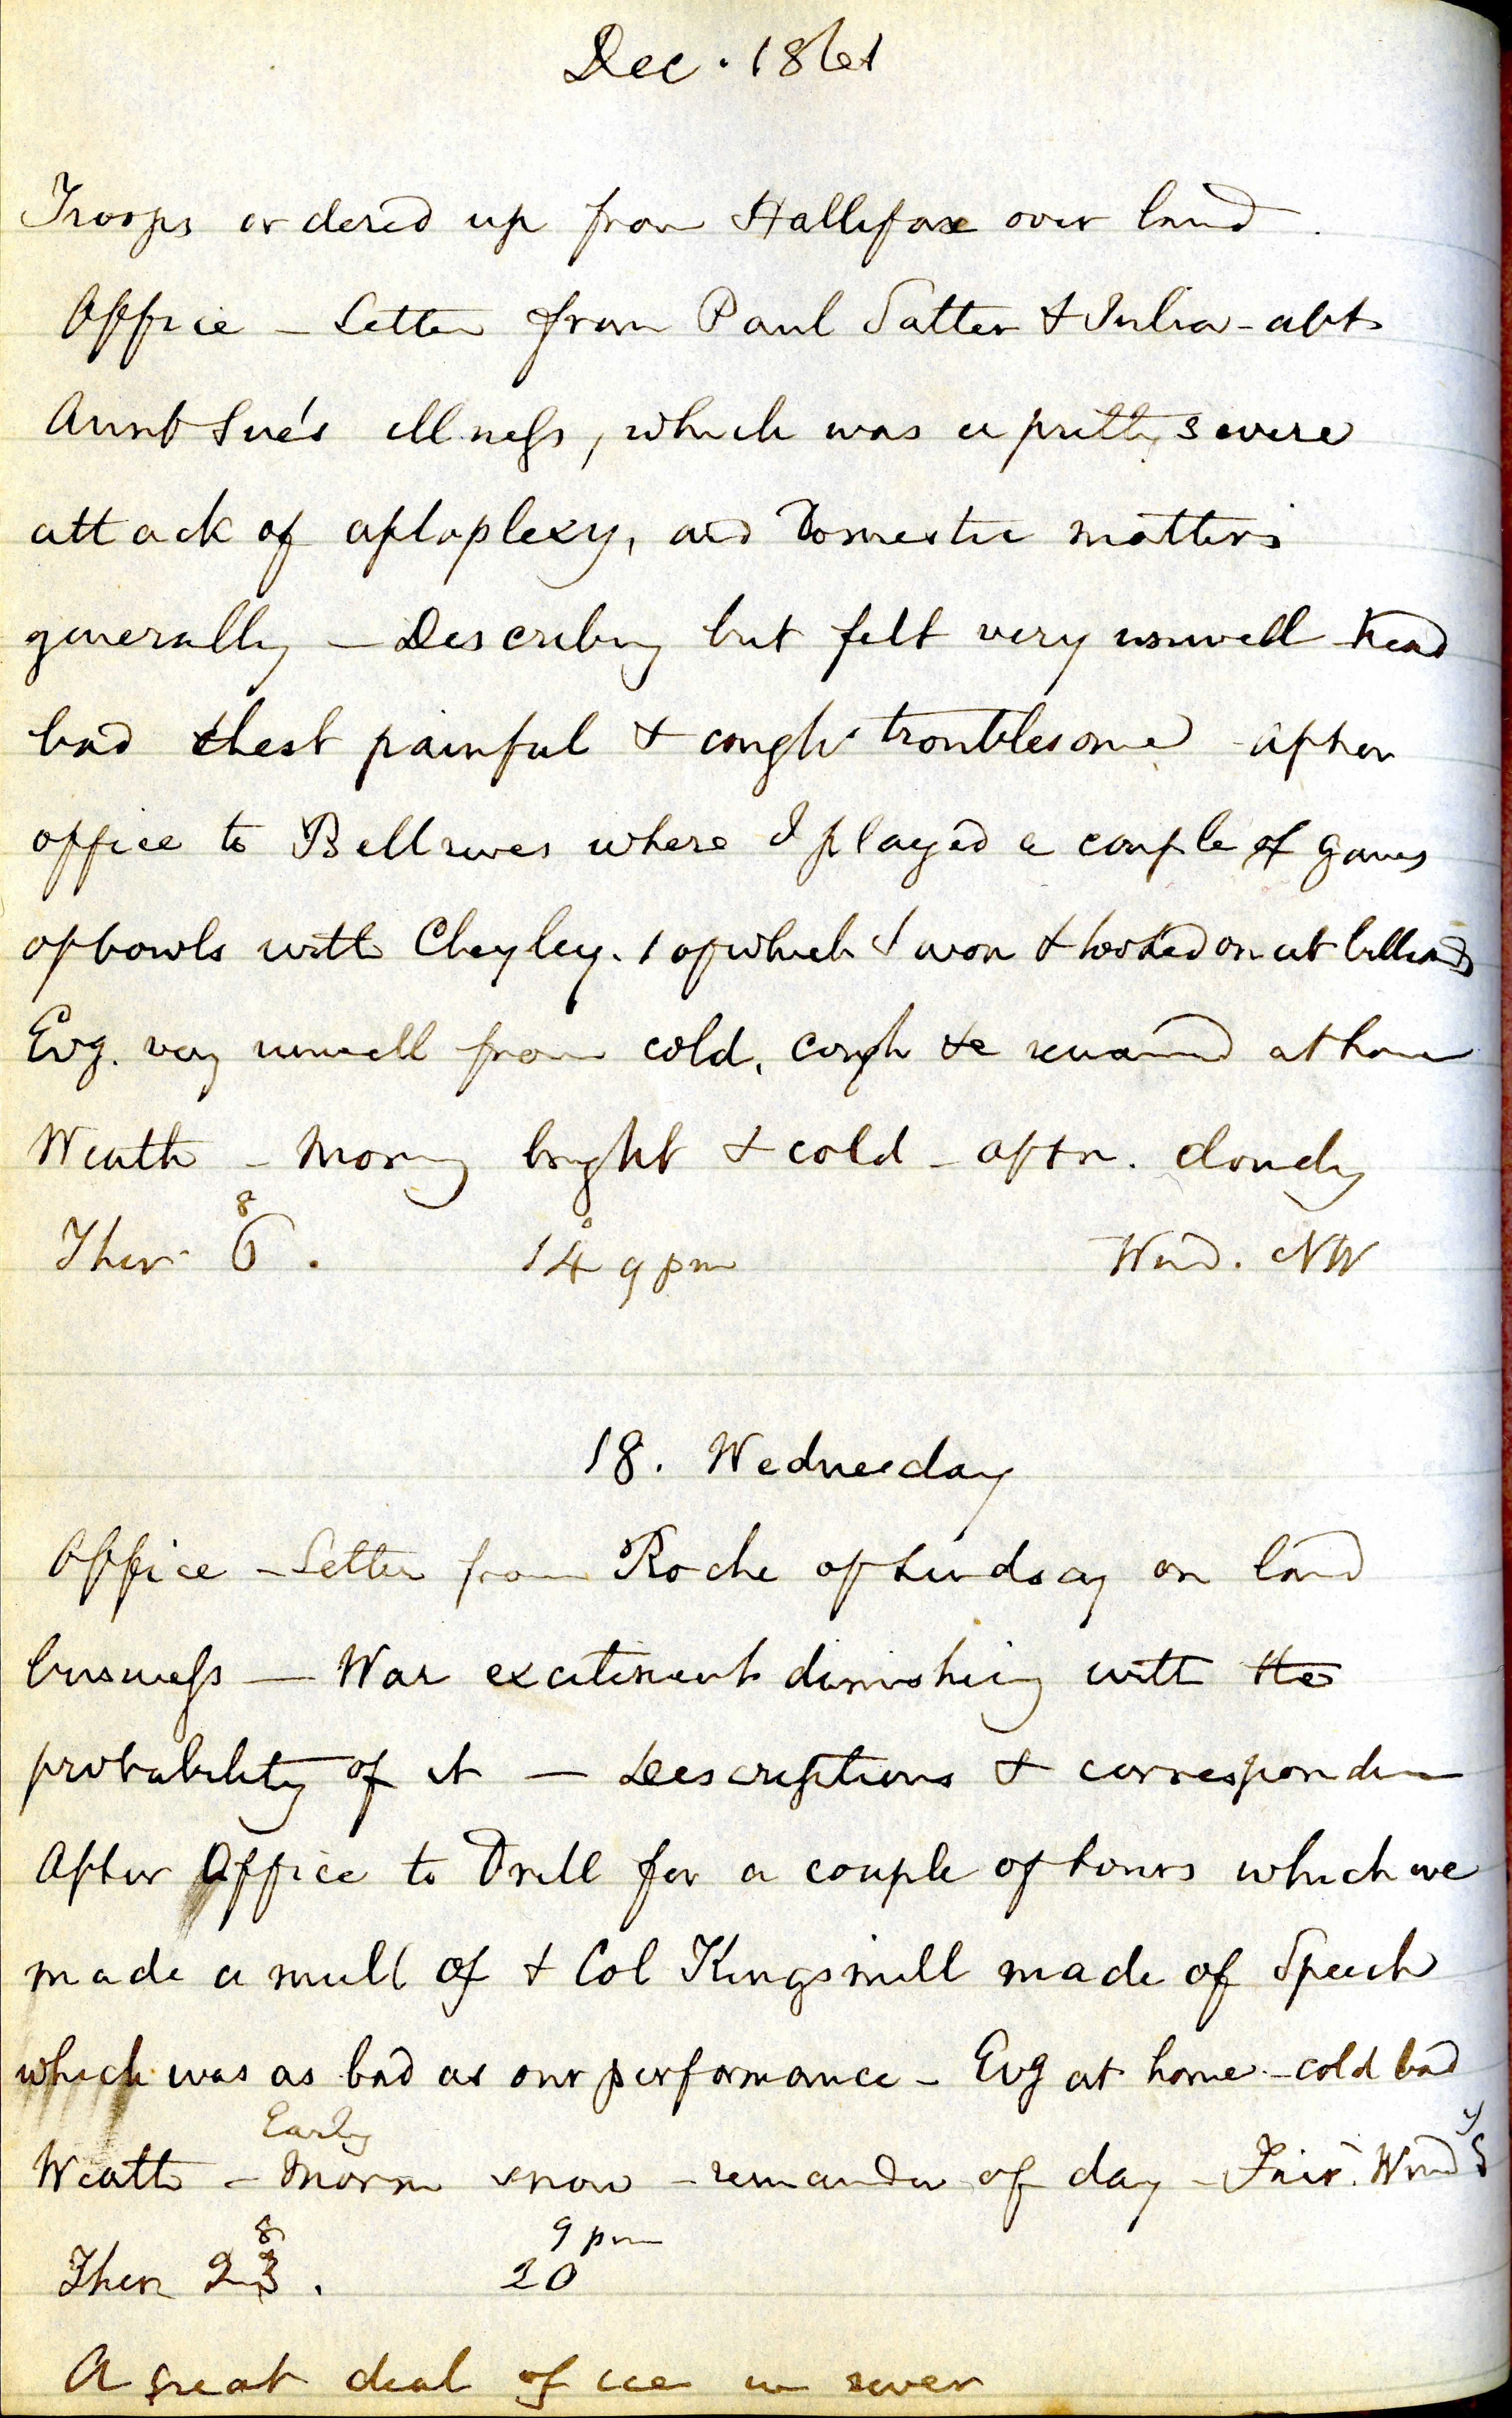 Dec. 1861
Troops ordered up from Hallifax over land.
Office - Letter from Paul Salter & Julia - abt
Aunt Sue's illness, which was a pretty severe
attack of aploplexy, and Domestic matters
generally - Describing but felt very unwell head
bad chest painful & cough troublesome - after
office to Bellrives where I played a couple of games
of bowls with Cheyley. 1 of which I won & looked on at billiards
Evg. very unwell from cold, cough &c remained at home
Weath - Morng bright & cold - aftn. cloudy
Ther 6. 8 14° 9 pm Wind. NW
18. Wednesday
Office - Letter from Roche of Lindsay on land
business - War excitement diminishing with the
probability of it - Descriptions & corresponden
After Office to Drill for a couple of hours which we
made a mull of & Col Kingsmill made of Speech
which was as bad as our performance - Evg at home - cold bad
Early
Weath - Morn snow - remainder of day - Fair. Wind S
8 9 pm
Ther 23. 20
A great deal of ice in river